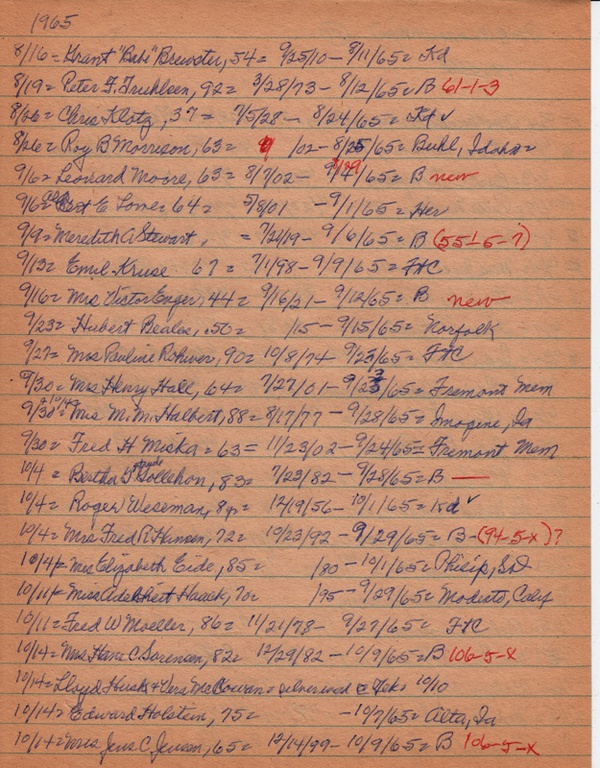 1965
8/16 = Grant "Babe" Brewster, 54 = 9/25/10 - 8/11/65 = Kd
8/19 = Peter F. Fruhlsen, 92 = 3/28/73 - 8/12/65 = B 61-1-3
8/26 = Chris Klotz, 37 = 7/5/28 - 8/24/65 = Kd ✓
8/26 = Roy B Morrison, 63 = /02 - 8/25/65 = Buhl, Idaho =
9/6 = Leonard Moore, 63 = 8/7/02 - 9/4/65 = B new
9/6 = E Lowe = 64 = 5/8/01 - 9/1/65 = Her
9/9 = Meredith A Stewart, = 7/24/19 - 9/6/65 = B (55-5-7)
9/13 = Emil Kruse 67 = 7/1/98 - 9/9/65 = FHC
9/16 = Mrs Victor Enger, 44 = 9/16/21 - 9/12/65 = B new
9/23 = Hubert Beales, 50 = /15 - 9/15/65 = Norfolk
9/27 = Mrs Pauline Rohwer, 90 = 10/8/74 - 9/23/65 = FHC
9/30 = Mrs Henry Hall, 64 = 7/27/01 - 9/23/65 = Fremont Mem
9/30 = Mrs M. M. Halbert, 88 = 8/17/77 - 9/28/65 = Imogene, Ia
9/30 = Fred H Miska = 63 = 11/23/02 - 9/24/65 = Fremont Mem
10/4 = Bertha Gollehon, 83 = 7/23/82 - 9/28/65 = B —
10/4 = Roger Weseman, 8yr = 12/19/56 - 10/1/65 = Kd ✓
10/4 = Mrs Fred R. Hansen, 72 = 10/23/92 - 9/29/65 = B - (94-5-x)?
10/4 = Mrs Elizabeth Eide, 85 = /80 - 10/1/65 = Philip, S.D
10/11 = Miss Adelheit Haack, 70 = /95 - 9/29/65 = Modesto, Calif
10/11 = Fred W Moeller, 86 = 11/21/78 - 9/27/65 = FHC
10/14 = Mrs Hans C. Sorensen, 82 = 12/29/82 - 10/9/65 = B 106-5-x
10/14 = Lloyd Husk & Vera McGowan = silver wed 10/10
10/14 = Edward Holstein, 75 = - 10/7/65 = Alta, Ia
10/14 = Mrs Jens C. Jensen, 65 = 12/14/99 - 10/9/65 = B 106-5-x